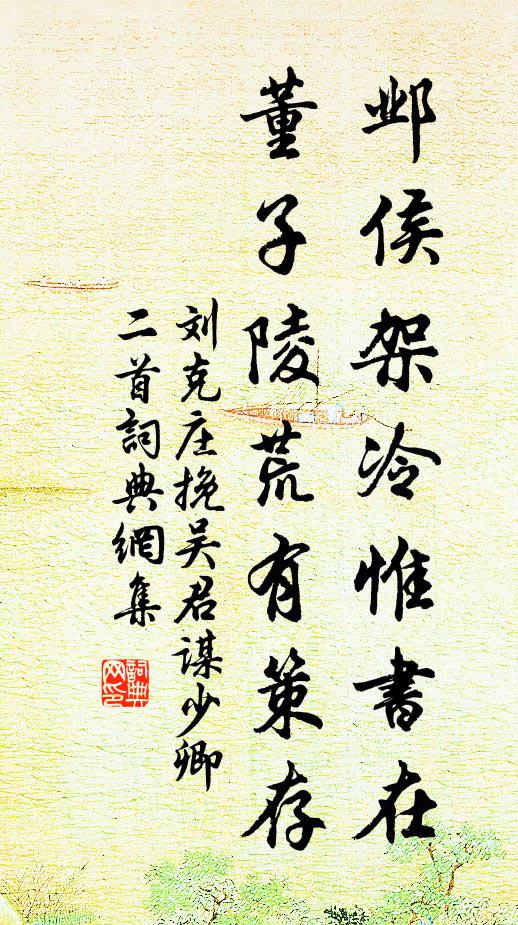 邺侯架冷惟书在
董子陵荒有策存
刘克庄挽吴君谋少卿
二首詞典網集
詞典
网印